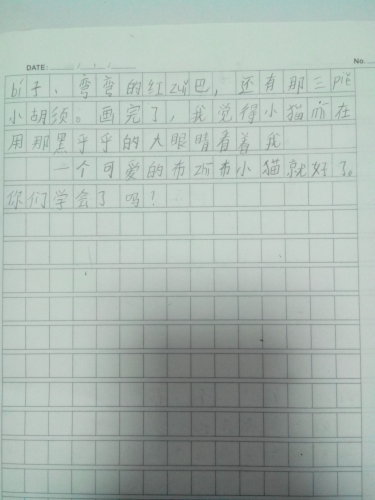 DATE: / /
No.
bí子、弯弯的红zuǐ巴，还有那三piě
小胡须。画完了，我觉得小猫正在
用那黑乎乎的大眼睛看着我
一个可爱的布zhī布小猫就好了。
你们学会了吗？